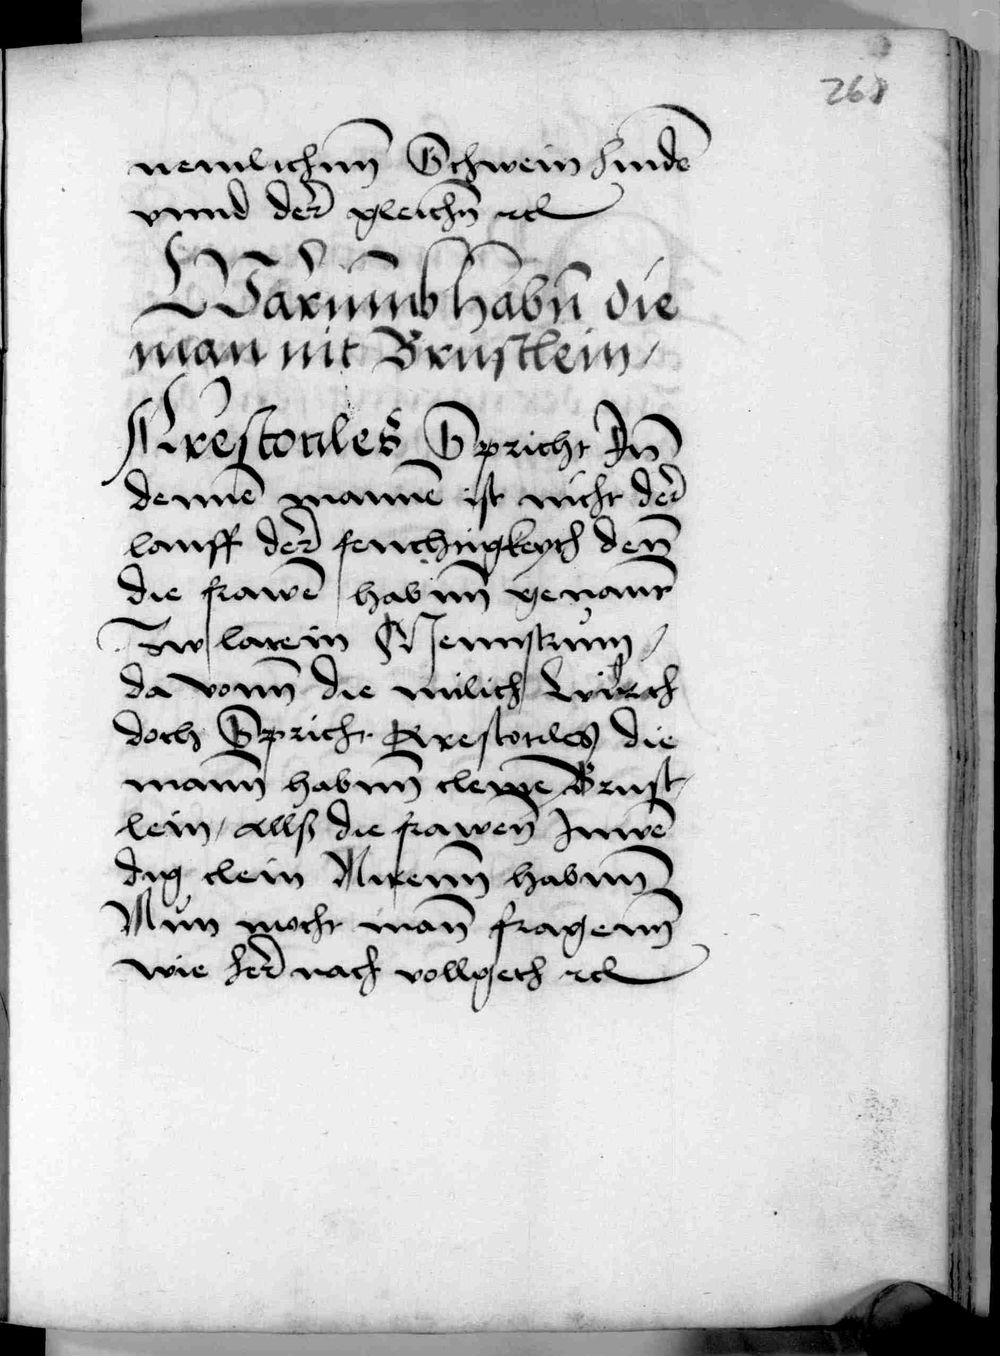 268
nemlichnn Schwein hundē
vnnd der gleichn̄ etc
Warumb habn̄ die
man nit Brustlein /
Arestotiles Spricht Jn̄
dennē mannē ist nicht der
lauff der feuchtigkeyth den̄
die frawē habnn̄ genant
Zw latein Menustrum /
da vonn̄ die milich wirth
doch Spricht Arestotiles die
mann̄ habnn̄ cleyne Brust
lein / Allß die frawen̄ Jnwē
dig clein Nirenn̄ habnn̄
Nun mocht man̄ fragenn̄
wie her nach vollgeth etc